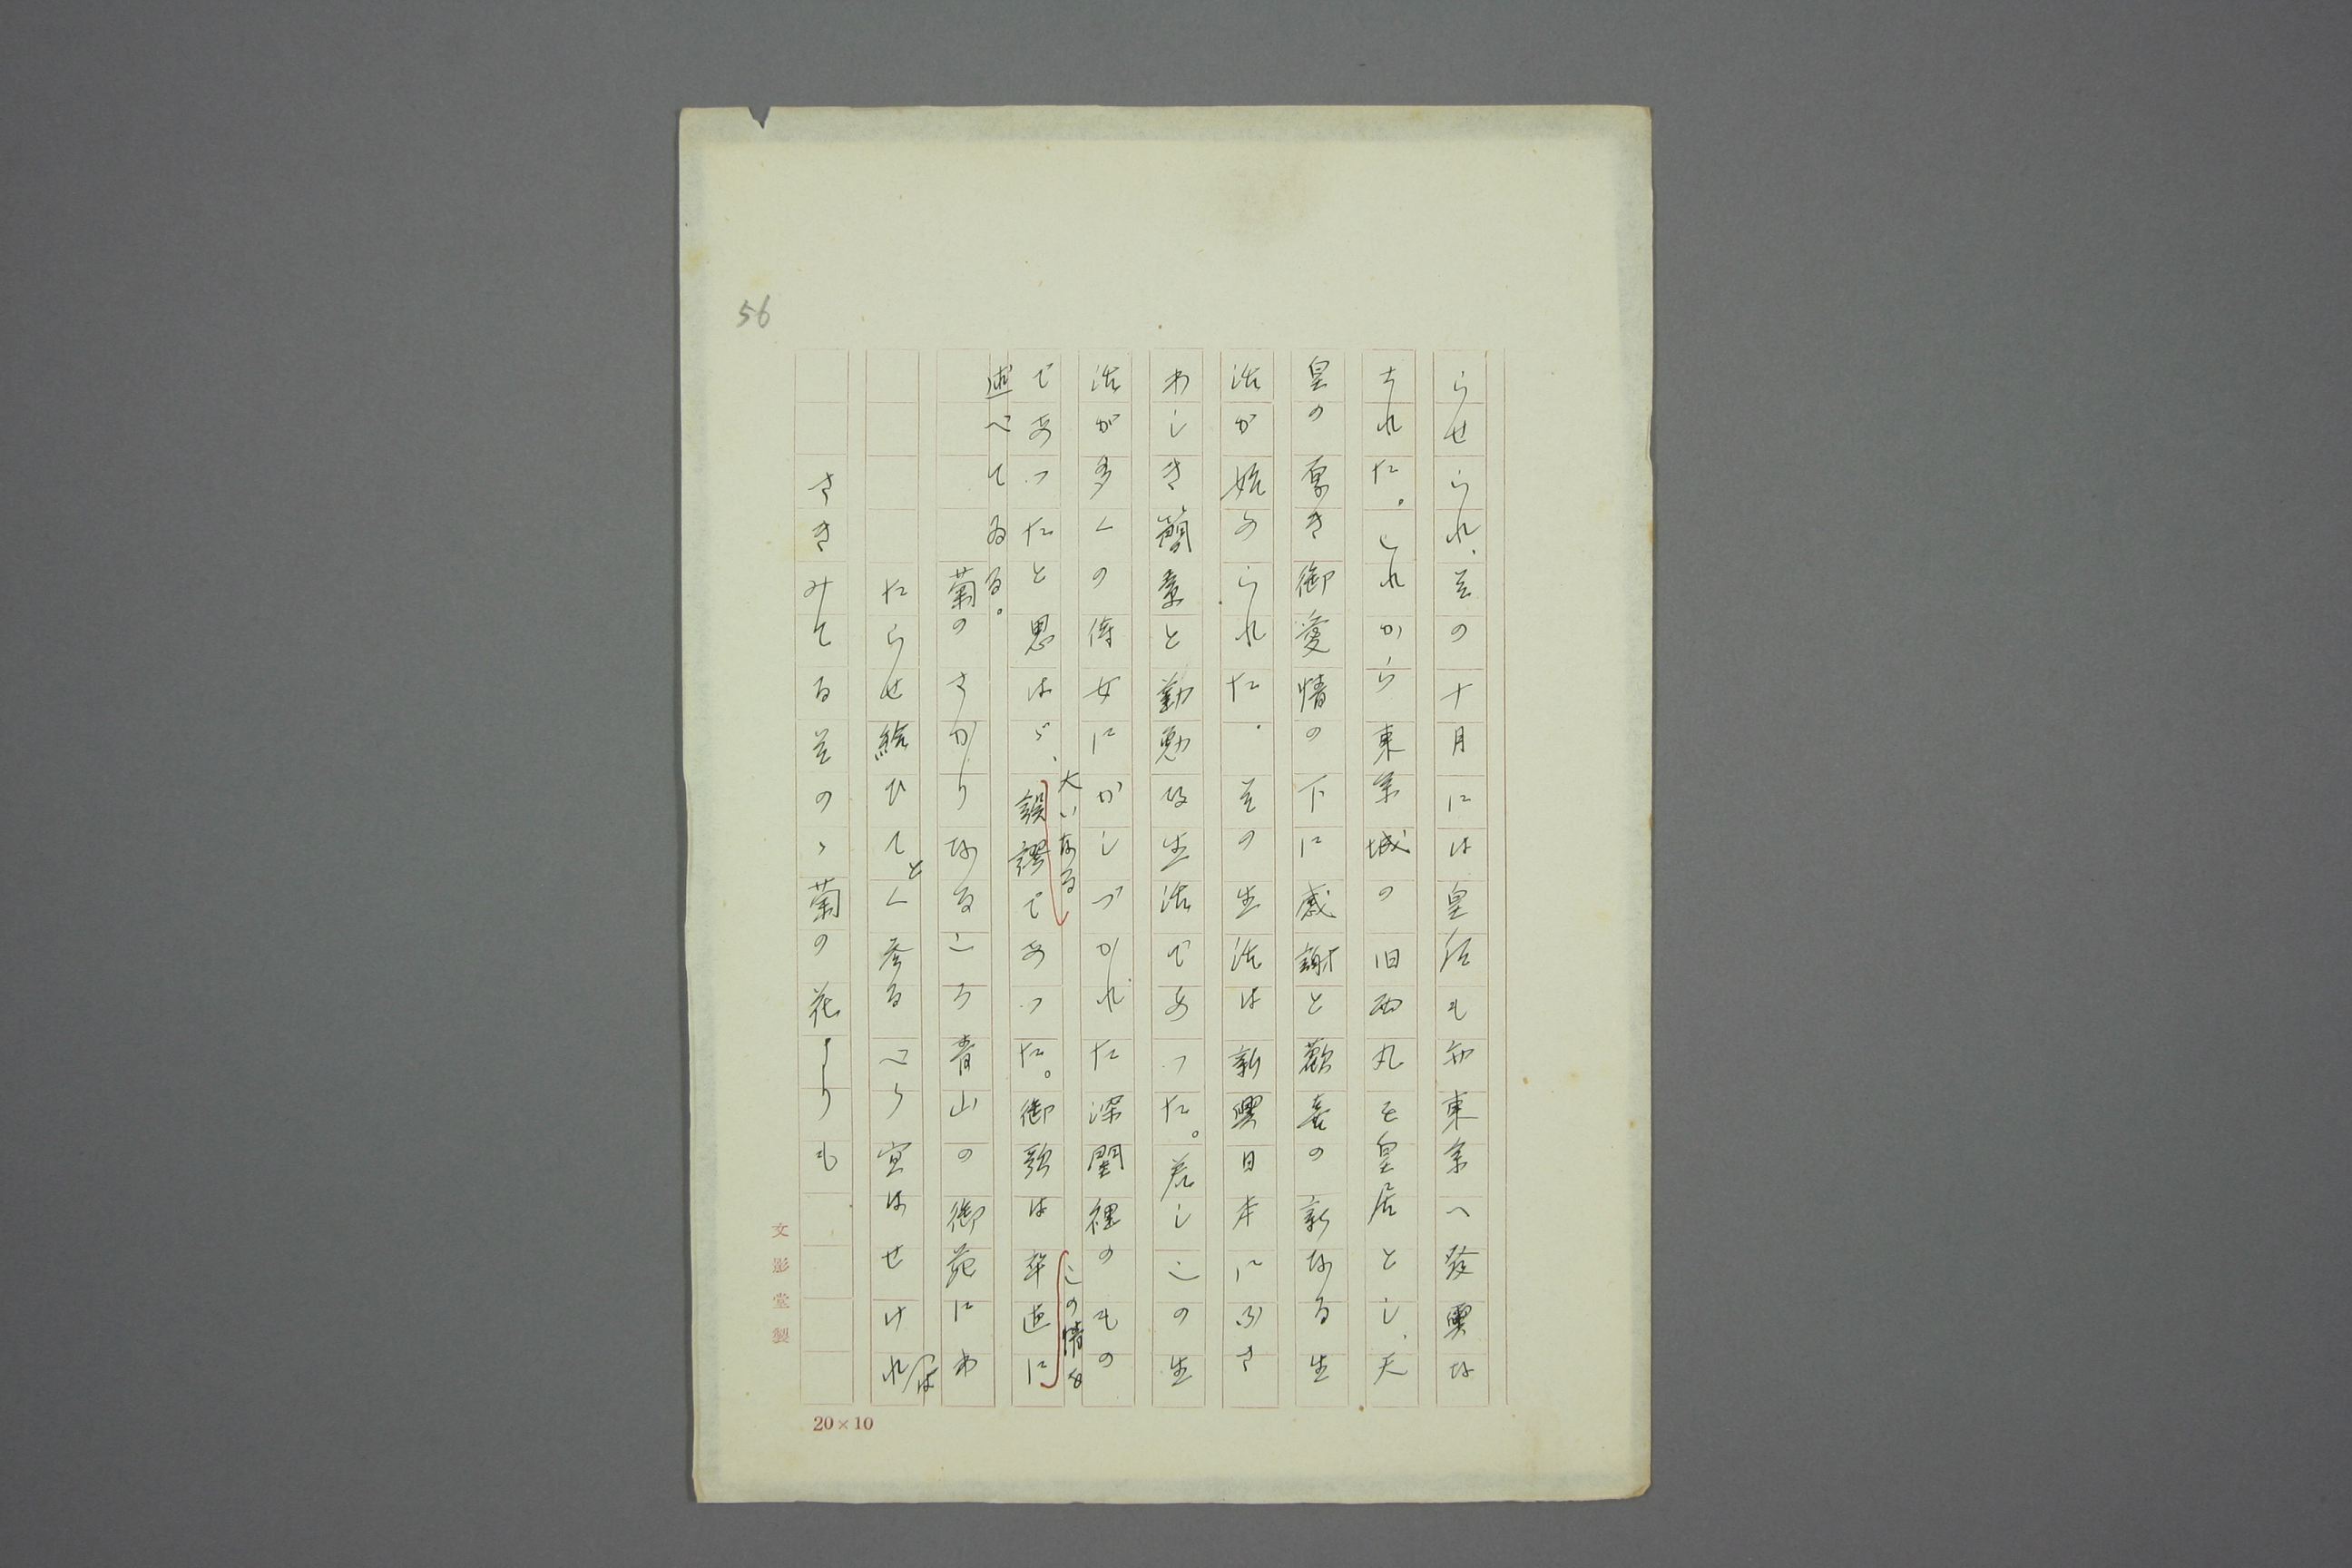 56
らせられ、その十月には皇后も亦東京へ發輿な
された。これから東京城の旧西丸を皇居とし、天
皇の厚き御愛情の下に感謝と歡喜の新なる生
活か始められた。その生活は新興日本にふさ
わしき簡素と勤勉な生活であつた。若しこの生
活が多くの侍女にかしづかれた深閨裡のもの
であつたと思はゞ、大いなる誤謬であつた。御歌はこの情を卒直に
述べてゐる。
菊のさかりなるころ青山の御苑にわ
たらせ給ひてとく参るべう宣はせけれは
さきみてるその丶菊の花よりも
文影堂製
20×10